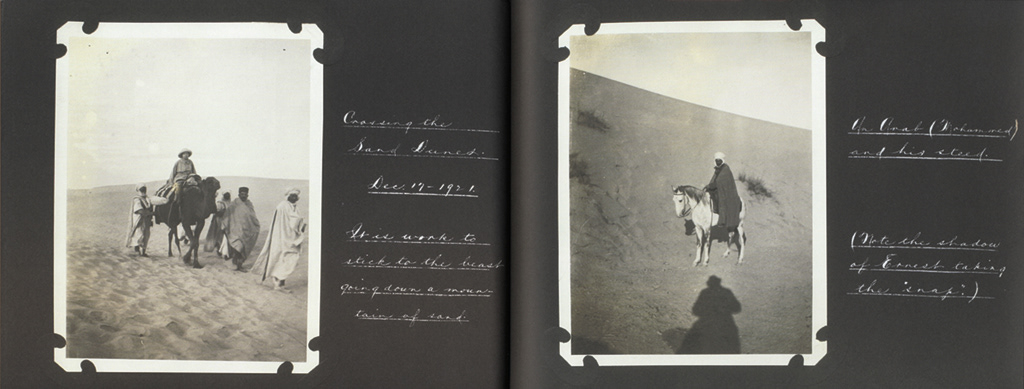 Crossing the
Sand Dunes.
Dec. 17 - 1921.
It is work to
stick to the beast
going down a moun-
tain of sand.
An Arab (Mohammed)
and his steed.
(Note the shadow
of Ernest taking
the "snap".)